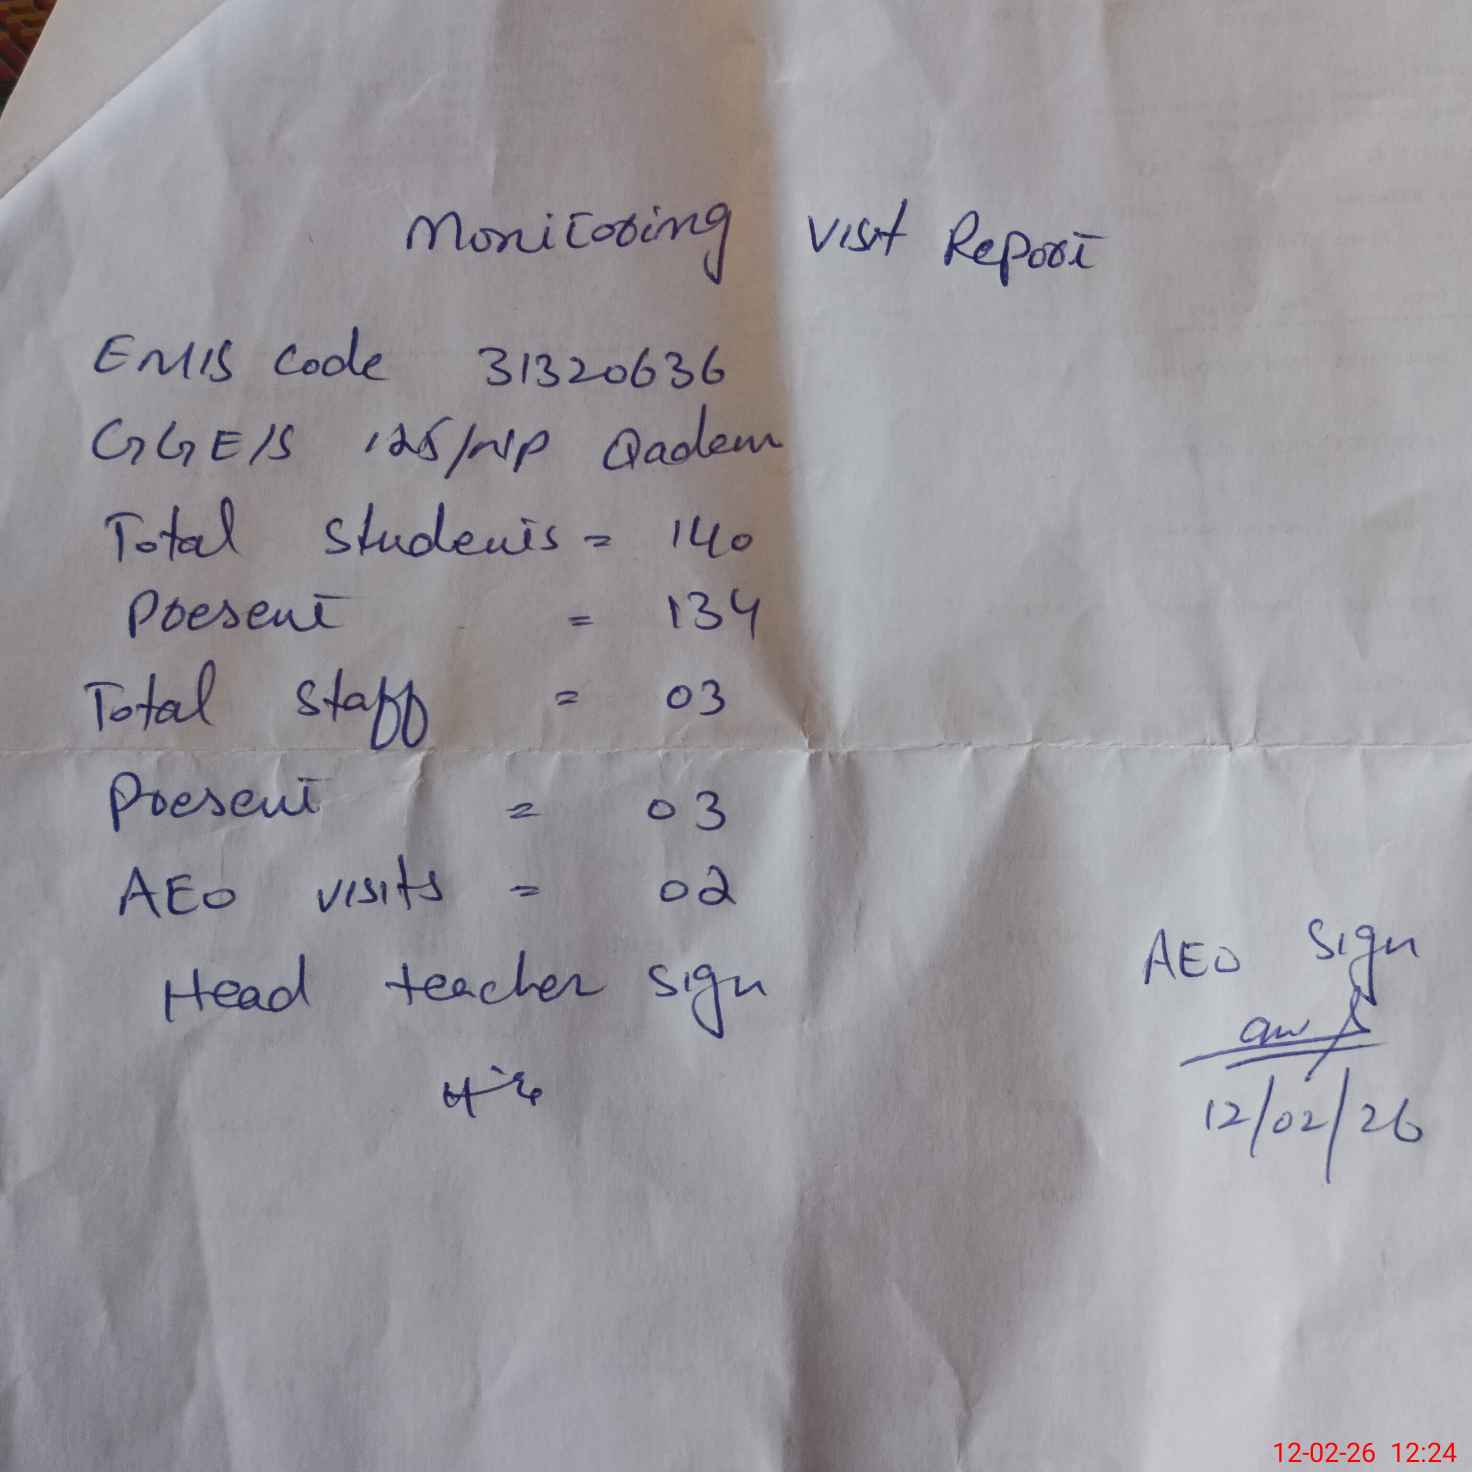 Monitoring visit Report
EMIS Code 31320636
GGE/S 125/NP Qadeem
Total students = 140
Present = 134
Total staff = 03
Present = 03
AEO visits = 02
Head teacher sign
AEO Sign
12/02/26
12-02-26 12:24